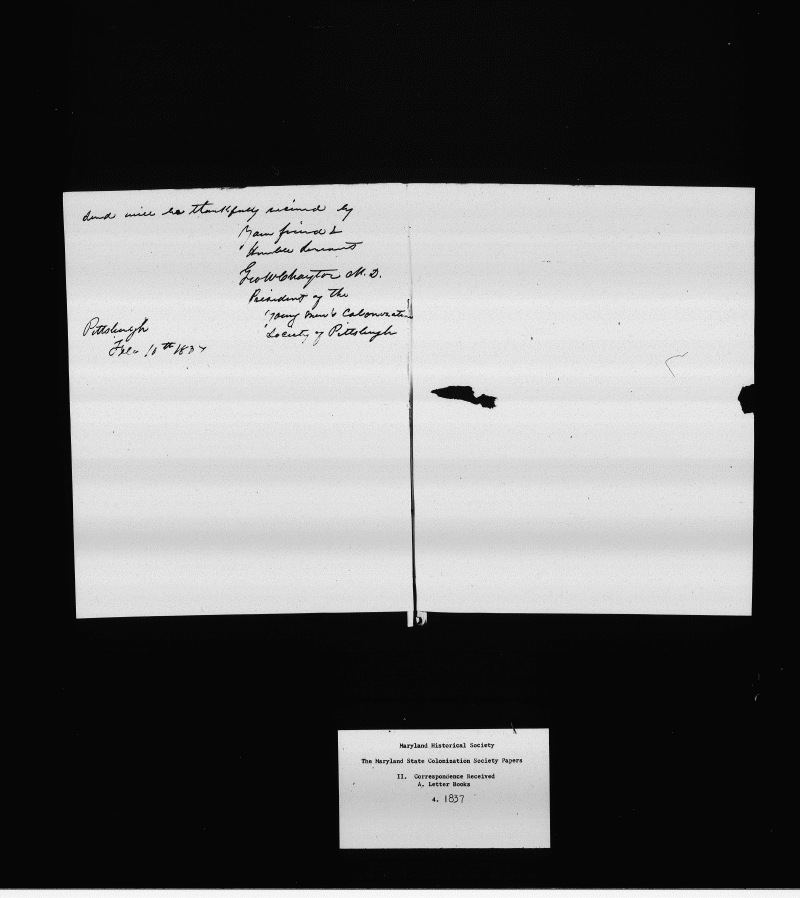 and will be thankfully received by
Your friend &
Humble Servant
Geo W Chaytor M.D.
President of the
Young Men's Colonization
Society of Pittsburgh
Pittsburgh
Feb. 10th 1837
Maryland Historical Society
The Maryland State Colonization Society Papers
II. Correspondence Received
A. Letter Books
4. 1837